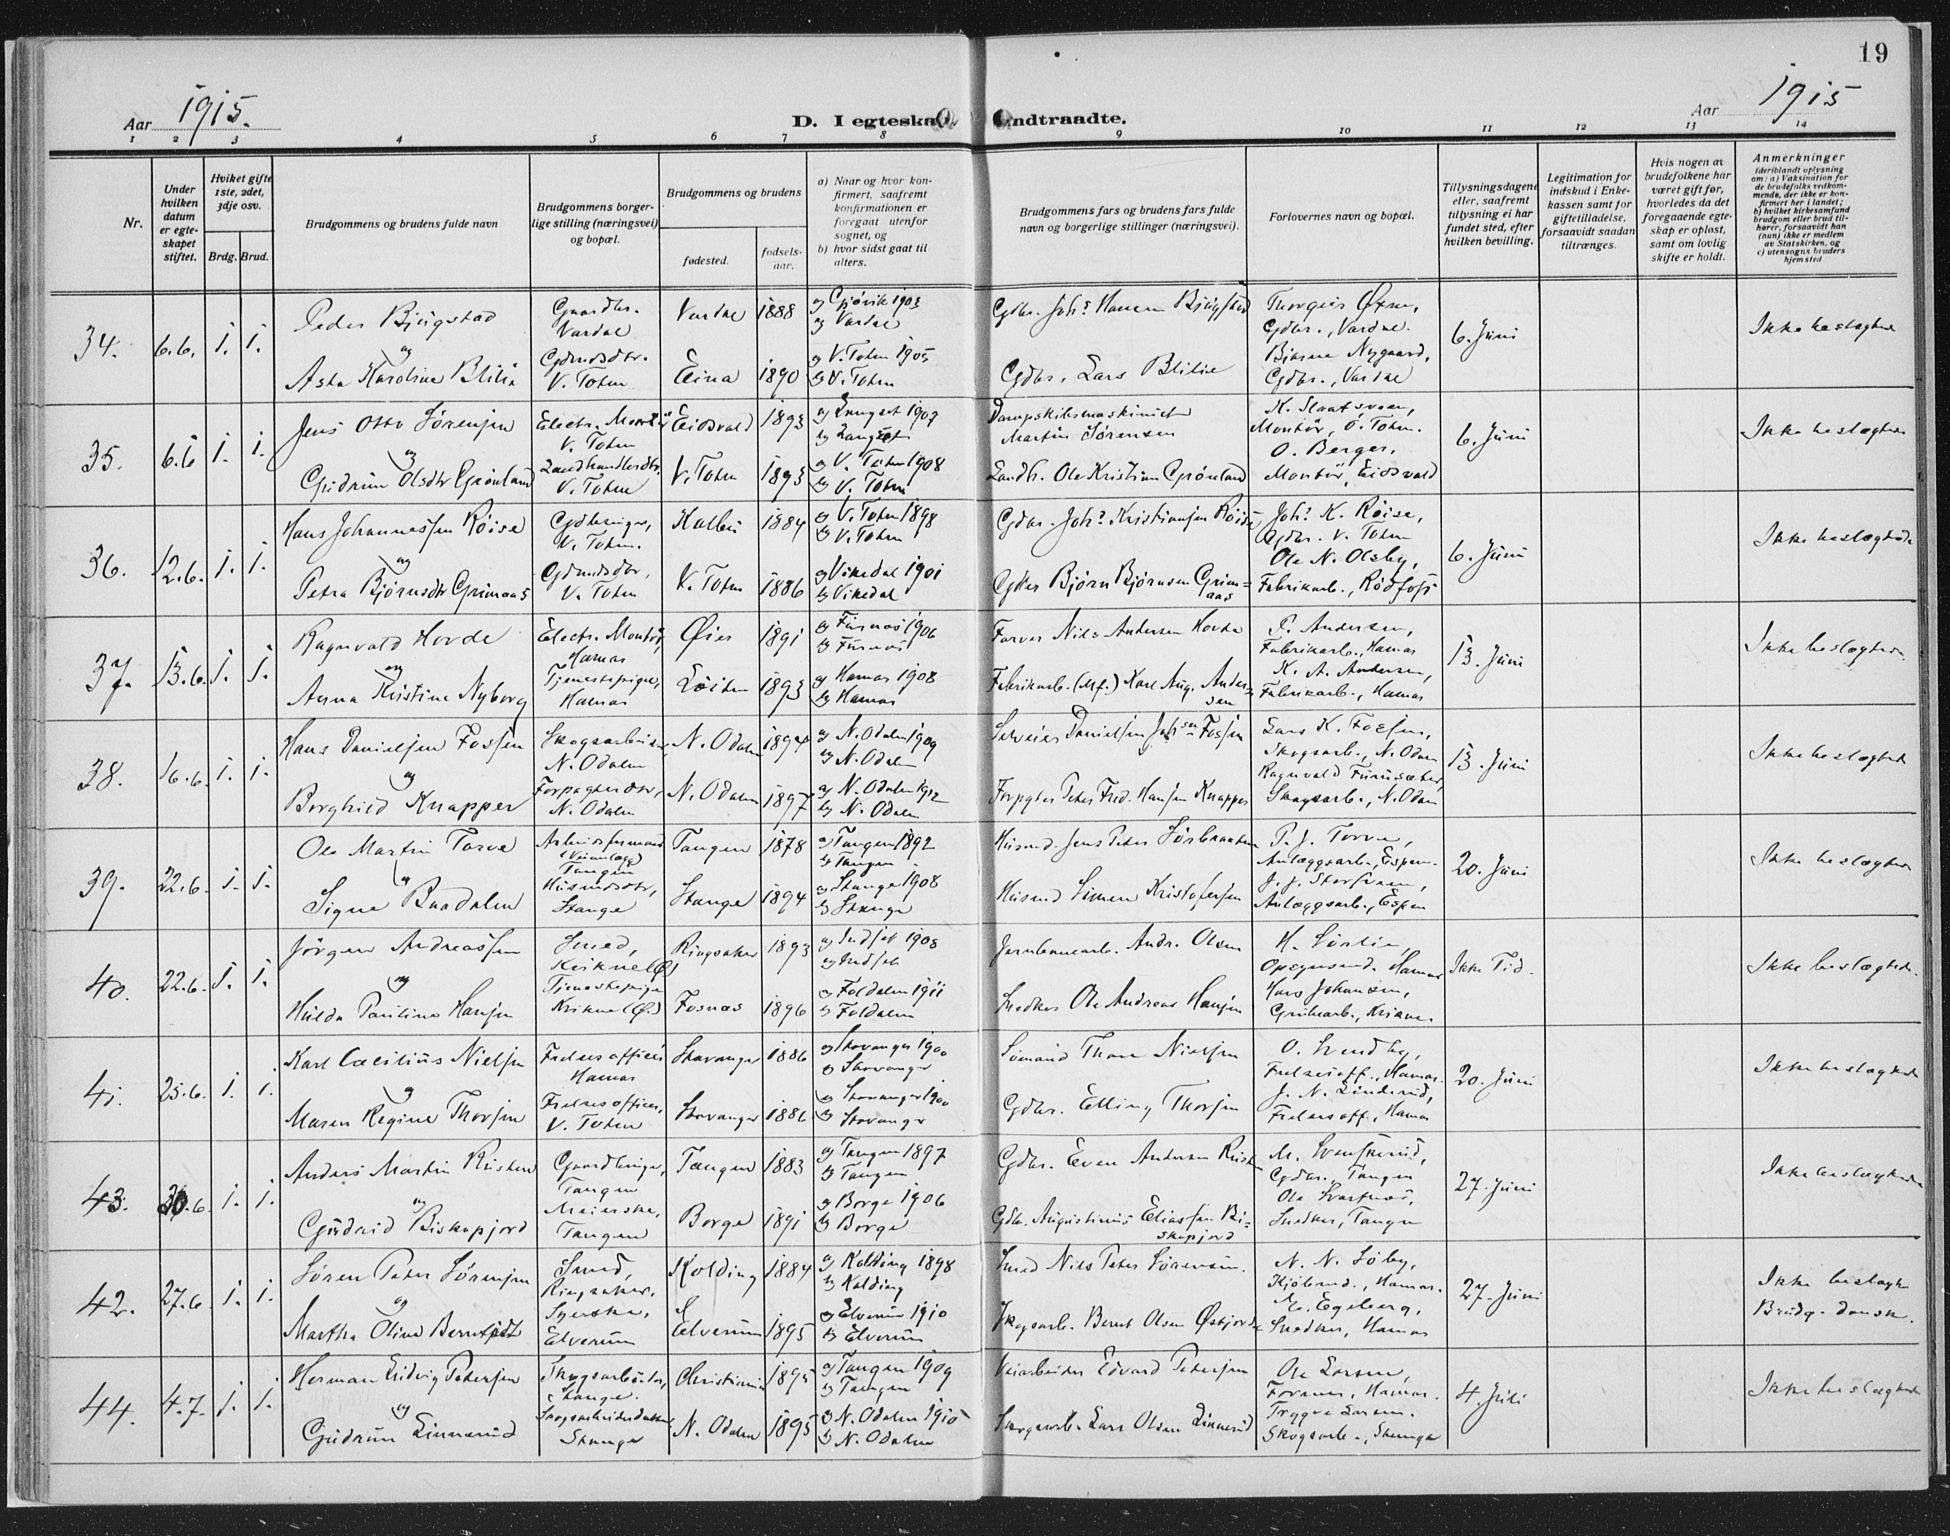 19
Aar 1915.
D. I egteska
ndtraadte.
Aar 1915
1 2 3 4 5 6 7 8 9 10 11 12 13 14
Nr.
Under hvilken datum er egteskapet stiftet.
Hviket gifte 1ste, 2det, 3dje osv.
Brdg. Brud.
Brudgommens og brudens fulde navn
Brudgommens borgerlige stilling (næringsvei) og bopæl.
Brudgommens og brudens
fødested.
fødselsaar.
a) Naar og hvor konfirmert, saafremt konfirmationen er foregaat utenfor sognet, og
b) hvor sidst gaat til alters.
Brudgommens fars og brudens fars fulde navn og borgerlige stillinger (næringsvei).
Forlovernes navn og bopæl.
Tillysningsdagene eller, saafremt tillysning ei har fundet sted, efter hvilken bevilling.
Legitimation for indskud i Enkekassen samt for giftetilladelse, forsaavidt saadan tiltrænges.
Hvis nogen av brudefolkene har været gift før, hvorledes da det foregaaende egteskap er opløst, samt om lovlig skifte er holdt.
Anmerkninger (deriblandt oplysning om: a) Vaksination for de brudefolks vedkommende, der ikke er konfirmert her i landet; b) hvilket kirkesamfund brudgom eller brud tilhører, forsaavidt han (hun) ikke er medlem av Statskirken, og c) utensogns bruders hjemsted
34. 6.6. 1. 1. Peder Bjugstad Gaardbr. Vardal Vardal 1888 a) Gjøvik 1903 b) Vardal
Gdbr. Johs Hansen Bjugstad Thorgeir Øxne, Gdbr., Vardal. 6. Juni Ikke beslægtede
og Asta Karoline Blilie Gdmdsdtr. V. Toten Eina 1890 a) V. Toten 1905 b) V. Toten
Gdbr. Lars Blilie Bjarne Nygaard, Gdbr., Vardal
35. 6.6 1. 1. Jens Otto Sørensen Electr. Montør V. Toten Eidsvold 1893 a) Langset 1907 b) Langset
Dampskibsmaskinist Martin Sørensen K. Slaatsveen, Montør, Ø. Toten. 6. Juni Ikke beslægtede
og Gudrun Olsdtr Grønland Landhandlerdtr. V. Toten V. Toten 1893 a) V. Toten 1908 b) V. Toten
Landh. Ole Kristian Grønland O. Berger, Montør, Eidsvold
36. 12.6. 1. 1. Hans Johannessen Røise Gdbesinger, V. Toten. Kolbu 1884 a) V. Toten 1898 b) V. Toten
Gdbr. Johs Kristiansen Røise Johs K. Røise, Gdbr. V. Toten 6. Juni Ikke beslægtede
og Petra Bjørnsdtr Grimaas Gdmdsdtr. V. Toten V. Toten 1886 a) Vikedal 1901 b) Vikedal
Gdbr Bjørn Bjørnsen Grimaas Ole N. Olsby, Fabrikarb., Rødfoss
37. 13.6. 1. 1. Ragnvald Hovde Electr. Montør, Hamar Øier 1891 a) Furnes 1906 b) Furnes
Farver Nils Andersen Hovde P. Andersen, Fabrikarb., Hamar 13. Juni Ikke beslægtede.
og Anna Kristine Nyborg Tjenestepige, Hamar Løiten 1893 a) Hamar 1908 b) Hamar
Fabrikarb. Karl Aug. Andersen K. A. Andersen, Fabrikarb., Hamar
38. 16.6. 1. 1. Hans Danielsen Fossen Skogsarbeider N. Odalen N. Odalen 1894 a) N. Odalen 1909 b) N. Odalen
Selveier Danielsen Johsen Fossen Lars K. Fossen, Skogsarb., N. Odalen 13. Juni Ikke beslægtede
og Borghild Knapper Forpagterdtr, N. Odalen N. Odalen 1897 a) N. Odalen 1912 b) N. Odalen
Forpgter Peter Fred. Hansen Knapper Ragnvald Furuseter, Skogsarb., N. Odalen
39. 22.6. 1. 1. Ole Martin Torve Arbeidsformand Tangen Tangen 1878 a) Tangen 1892 b) Tangen
Husmd. Jens Peter Sørbraaten P. J. Torve, Anlægsarb., Espen. 20. Juni Ikke beslægtede
og Signe Baadalen Husmdsdtr, Stange Stange 1894 a) Stange 1908 b) Stange
Husmd Simen Kristofersen J. J. Storsveen, Anlægsarb., Espen
40. 22.6. 1. 1. Jørgen Andreassen Smed, Kirkenes (Ø) Ringsaker 1893 a) Indset 1908 b) Indset
Jernbanearb. Andr. Olsen H. Sørlie, Opsynsmd. Hamar Ikke Tid. Ikke beslægtede.
og Hulda Pauline Hansen Tjenestepige Fosnes 1896 a) Foldalen 1911 b) Foldalen
Snedker Ole Andreas Hansen Hans Johansen, Grubearb.,
41. 25.6. 1. 1. Karl Cæcilius Nielsen Frelsesofficer Hamar Stavanger 1886 a) Stavanger 1900 b) Stavanger
Sømand Thore Nielsen O. Lundby, Frelsesoff., Hamar. 20. Juni Ikke beslægtede
og Maren Regine Thorsen Frelsesofficer, V. Toten Stavanger 1886 a) Stavanger 1900 b) Stavanger
Gdbr. Elling Thorsen J. N. Linderud, Frelsesoff., Hamar
43. 30.6. 1. 1. Anders Martin Risten Gaardbruger, Tangen Tangen 1883 a) Tangen 1897 b) Tangen
Gdbr. Even Andersen Risten M. Svenskerud, Gdbr. Tangen 27. Juni Ikke beslægtede
og Gudrid Biskopjord Meierske, Tangen Borge 1891 a) Borge 1906 b) Borge
Gdbr. Augustinus Eliassen Biskopjord Ole Svartnes, Snedker, Tangen
42. 27.6. 1. 1. Søren Peter Sørensen Smed, Ringsaker. Kolding 1884 a) Kolding 1898 b) Kolding
Smed Nils Peter Sørensen. N. N. Søby, Kjøbmd., Hamar. 27. Juni Ikke beslægtede Brudg. dansk.
og Martha Oline Berntsdt Syerske, Elverum Elverum 1895 a) Elverum 1910 b) Elverum
Skogsarb. Bernt Olsen Østjorde M. Egeberg, Snedker, Hamar
44. 4.7. 1. 1. Herman Ludvig Petersen Skogsarbeider, Stange. Christiania 1895 a) Tangen 1909 b) Tangen
Veiarbeider Edvard Petersen Ole Larsen, Formann, Hamar. 4 Juli Ikke beslægtede
og Gudrun Linnerud Skogsarbeiderdatter Stange N. Odalen 1895 a) N. Odalen 1910 b) N. Odalen
Skogsarb. Lars Olsen Linnerud Trygve Larsen. Skogsarb., Stange